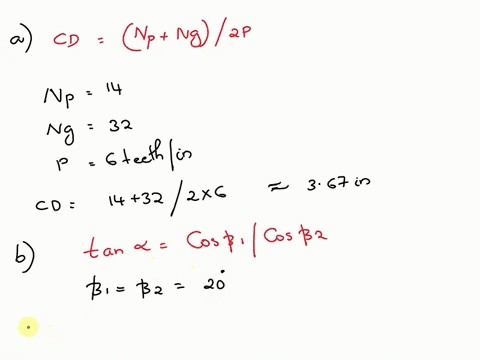 a) CD = (Np + Ng) / 2P
Np = 14
Ng = 32
P = 6 teeth/in
CD = 14+32 / 2×6 ≈ 3.67 in
b) tan α = Cos β1 / Cos β2
β1 = β2 = 20°